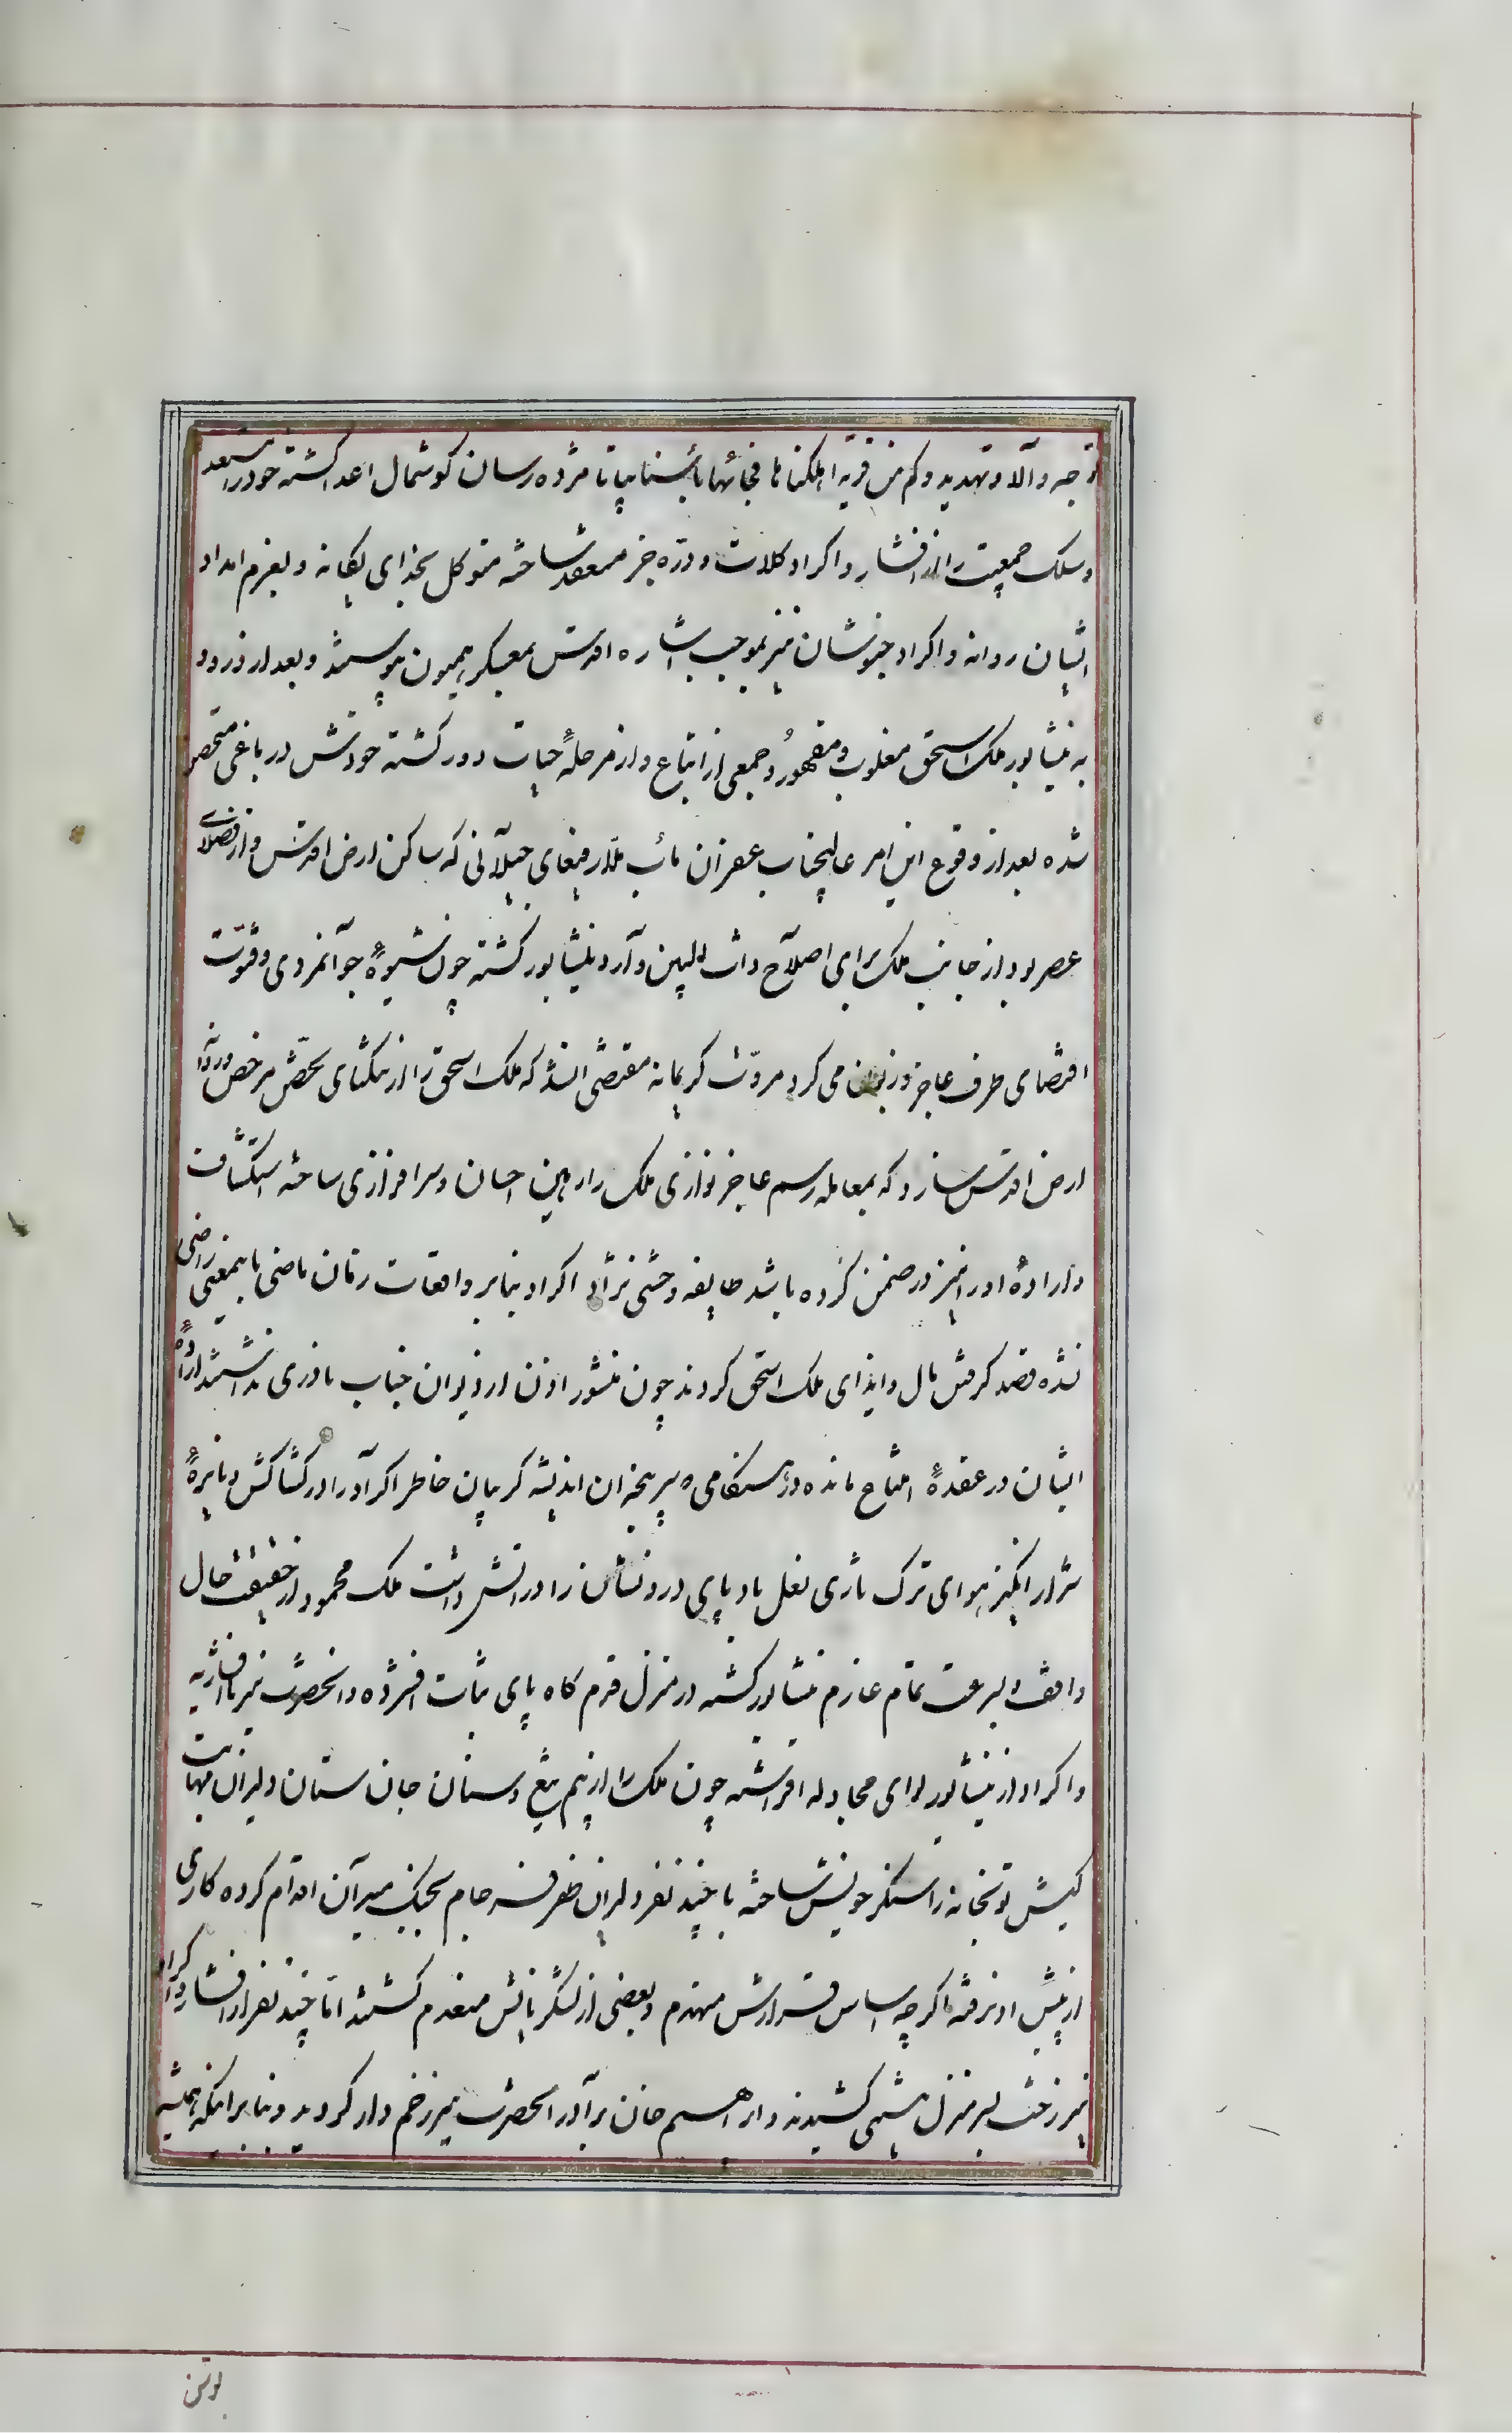 توجیه و آلا و تهدید و کم من قریه اهلکناها فجائها بأسنا بیاتا مژده رسان کوشمال اعدا کشته خود را مستعد
و سلک جمعیت را از افشار و اکراد کلات و دره جز منعقد ساخته متوکل بخدای یکانه و بعزم امداد
ایشان روانه و اکراد خبوشان نیز بموجب اشاره اقدس بمعسکر همیون پیوستند و بعد از ورود
به نیشابور ملک اسحق مغلوب و مقهور و جمعی از اتباع او از مرحلهٔ حیات دور کشته خودش در باغی متحصن
شده بعد از وقوع این امر عالیجناب غفران مآب ملا رفیعای جیلانی که ساکن ارض اقدس و از فضلای
عصر بود از جانب ملک برای اصلاح ذات البین وارد نیشابور کشته چون شیوهٔ جوانمردی و فتوت
اقتضای طرف عاجز و زبون می کرد مروت کریمانه مقتضی آن شد که ملک اسحق را از تنکنای تحصن مرخص و روانه
ارض اقدس سازد که بمعامله رسم عاجز نوازی ملک را رهین احسان و سرافرازی ساخته استکشاف
و اراده او را نیز در ضمن کرده باشد طایفه وحشی نژاد اکراد بنابر واقعات زمان ماضی باینمعنی راضی
نشده قصد کرفتن مال و ایذای ملک اسحق کردند چون منشور اذن از دیوان جناب نادری نداشتند ارادهٔ
ایشان در عقدهٔ امتناع مانده و در هنکامی که سرپنجه آن اندیشه کریبان خاطر اکراد را در کشاکش و نایرهٔ
شرار انکیز هوای ترک تازی نعل بادپای درونشان را در آتش داشت ملک محمود از حقیقت حال
واقف و بسرعت تمام عازم نیشابور کشته در منزل قدم کاه پای ثبات افشرده و آنحضرت نیز با افشاریه
و اکراد از نیشابور لوای مجادله افراشته چون ملک را از بیم تیغ و سنان جان ستان دلیران مهابت
کیش توپخانه را سنکر خویش ساخته با چند نفر دلیران ظفر فرجام بجنک میدان اقدام کرده کاری
از پیش او نرفته اکرچه اساس قرارش منهدم و بعضی از لشکریانش منعدم کشتند اما چند نفر از افشار و اکراد
نیز رخت بسرمنزل نیستی کشیدند و ابراهیم خان برادر آنحضرت نیز زخم دار کردید و بنابر اینکه همیشه